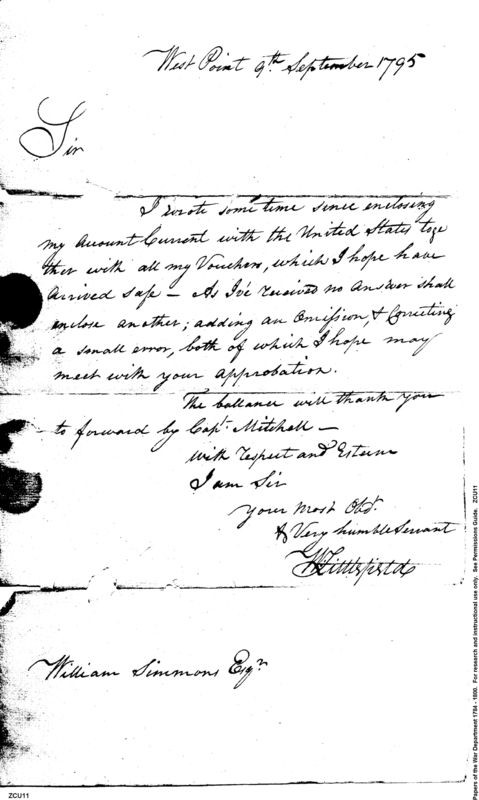 West Point 9th. September 1795
Sir
I wrote some time since enclosing
my Account Current with the United States toge
ther with all my Vouchers, which I hope have
Arrived safe – As I've received no answer shall
enclose another; adding an Omission, & Correcting
a small error, both of which I hope may
meet with your approbation.
The ballance will thank you
to forward by Capt. Mitchell –
with respect and Esteem
I am Sir
your most Obdt.
& Very humble Servant
W Littlefield
William Simmons Esqr
ZCU11
Papers of the War Department 1784 - 1800. For research and instructional use only. See Permissions Guide. ZCU11